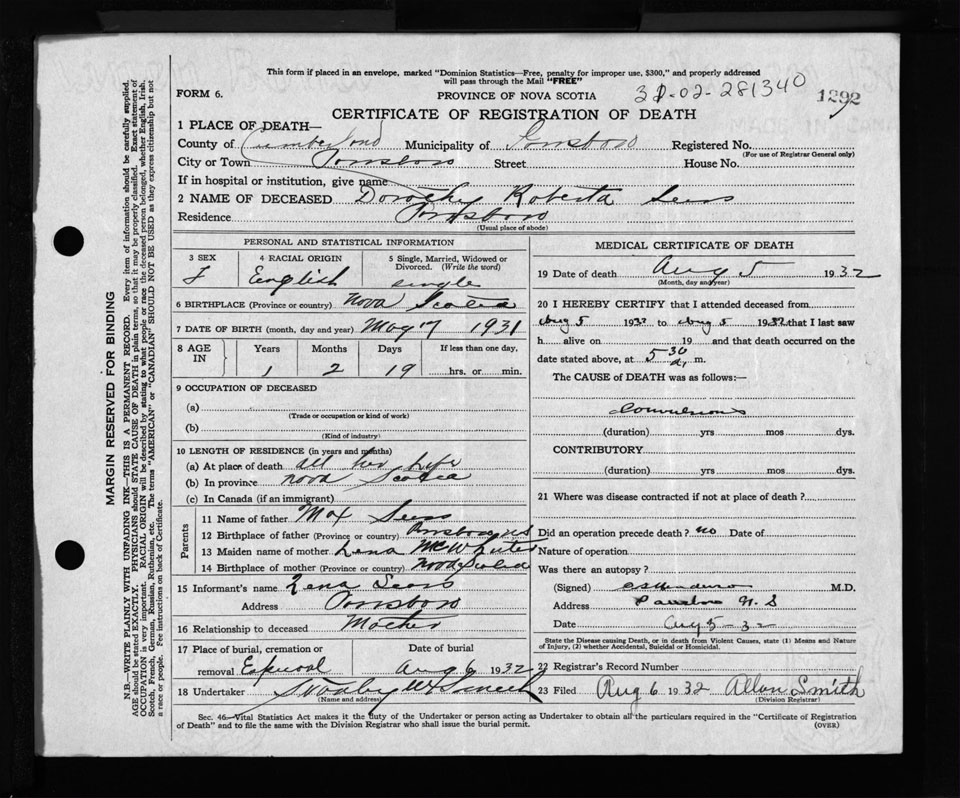 This form if placed in an envelope, marked "Dominion Statistics—Free, penalty for improper use, $300," and properly addressed
will pass through the Mail "FREE"
FORM 6.
PROVINCE OF NOVA SCOTIA
32-02-281340
1292
CERTIFICATE OF REGISTRATION OF DEATH
1 PLACE OF DEATH—
County of Cumberland Municipality of Parrsboro Registered No.
(For use of Registrar General only)
City or Town Parrsboro Street House No.
If in hospital or institution, give name
2 NAME OF DECEASED Dorothy Roberta
Residence Parrsboro
(Usual place of abode)
PERSONAL AND STATISTICAL INFORMATION
3 SEX
F
4 RACIAL ORIGIN
English
5 Single, Married, Widowed or
Divorced. (Write the word)
single
6 BIRTHPLACE (Province or country) Nova Scotia
7 DATE OF BIRTH (month, day and year) May 17 1931
8 AGE IN
Years Months Days If less than one day,
1 2 19 hrs. or min.
9 OCCUPATION OF DECEASED
(a)
(Trade or occupation or kind of work)
(b)
(Kind of industry)
10 LENGTH OF RESIDENCE (in years and months)
(a) At place of death all her life
(b) In province Nova Scotia
(c) In Canada (if an immigrant)
Parents
11 Name of father Max
12 Birthplace of father (Province or country) Parrsboro NS
13 Maiden name of mother Lena
14 Birthplace of mother (Province or country) Nova Scotia
15 Informant's name Lena
Address Parrsboro
16 Relationship to deceased Mother
17 Place of burial, cremation or
removal
Date of burial
Aug 6 1932
18 Undertaker
(Name and address)
MEDICAL CERTIFICATE OF DEATH
19 Date of death Aug 5 1932
(Month, day and year)
20 I HEREBY CERTIFY that I attended deceased from
Aug 5 1932 to Aug 5 1932 that I last saw
h alive on 19 and that death occurred on the
date stated above, at 5 30 m.
The CAUSE of DEATH was as follows:—
Convulsions
(duration) yrs mos dys.
CONTRIBUTORY
(duration) yrs mos dys.
21 Where was disease contracted if not at place of death?
Did an operation precede death? no Date of
Nature of operation
Was there an autopsy?
(Signed) M.D.
Address Parrsboro N. S
Date Aug 5-32
State the Disease causing Death, or in death from Violent Causes, state (1) Means and Nature
of Injury, (2) whether Accidental, Suicidal or Homicidal.
22 Registrar's Record Number
23 Filed Aug 6 1932 Allan Smith
(Division Registrar)
Sec. 46—Vital Statistics Act makes it the duty of the Undertaker or person acting as Undertaker to obtain all the particulars required in the "Certificate of Registration
of Death" and to file the same with the Division Registrar who shall issue the burial permit.
(OVER)
MARGIN RESERVED FOR BINDING
N.B.—WRITE PLAINLY WITH UNFADING INK—THIS IS A PERMANENT RECORD. Every item of information should be carefully supplied.
AGE should be stated EXACTLY. PHYSICIANS should STATE CAUSE OF DEATH in plain terms, so that it may be properly classified. Exact statement of
OCCUPATION is very important. RACIAL ORIGIN will be described by stating to what people or race the deceased person belonged, whether English, Irish,
Scotch, French, German, Russian, Ruthenian, etc. The terms "AMERICAN" or "CANADIAN" SHOULD NOT BE USED as they express citizenship but not
a race or people. Fee instructions on back of Certificate.